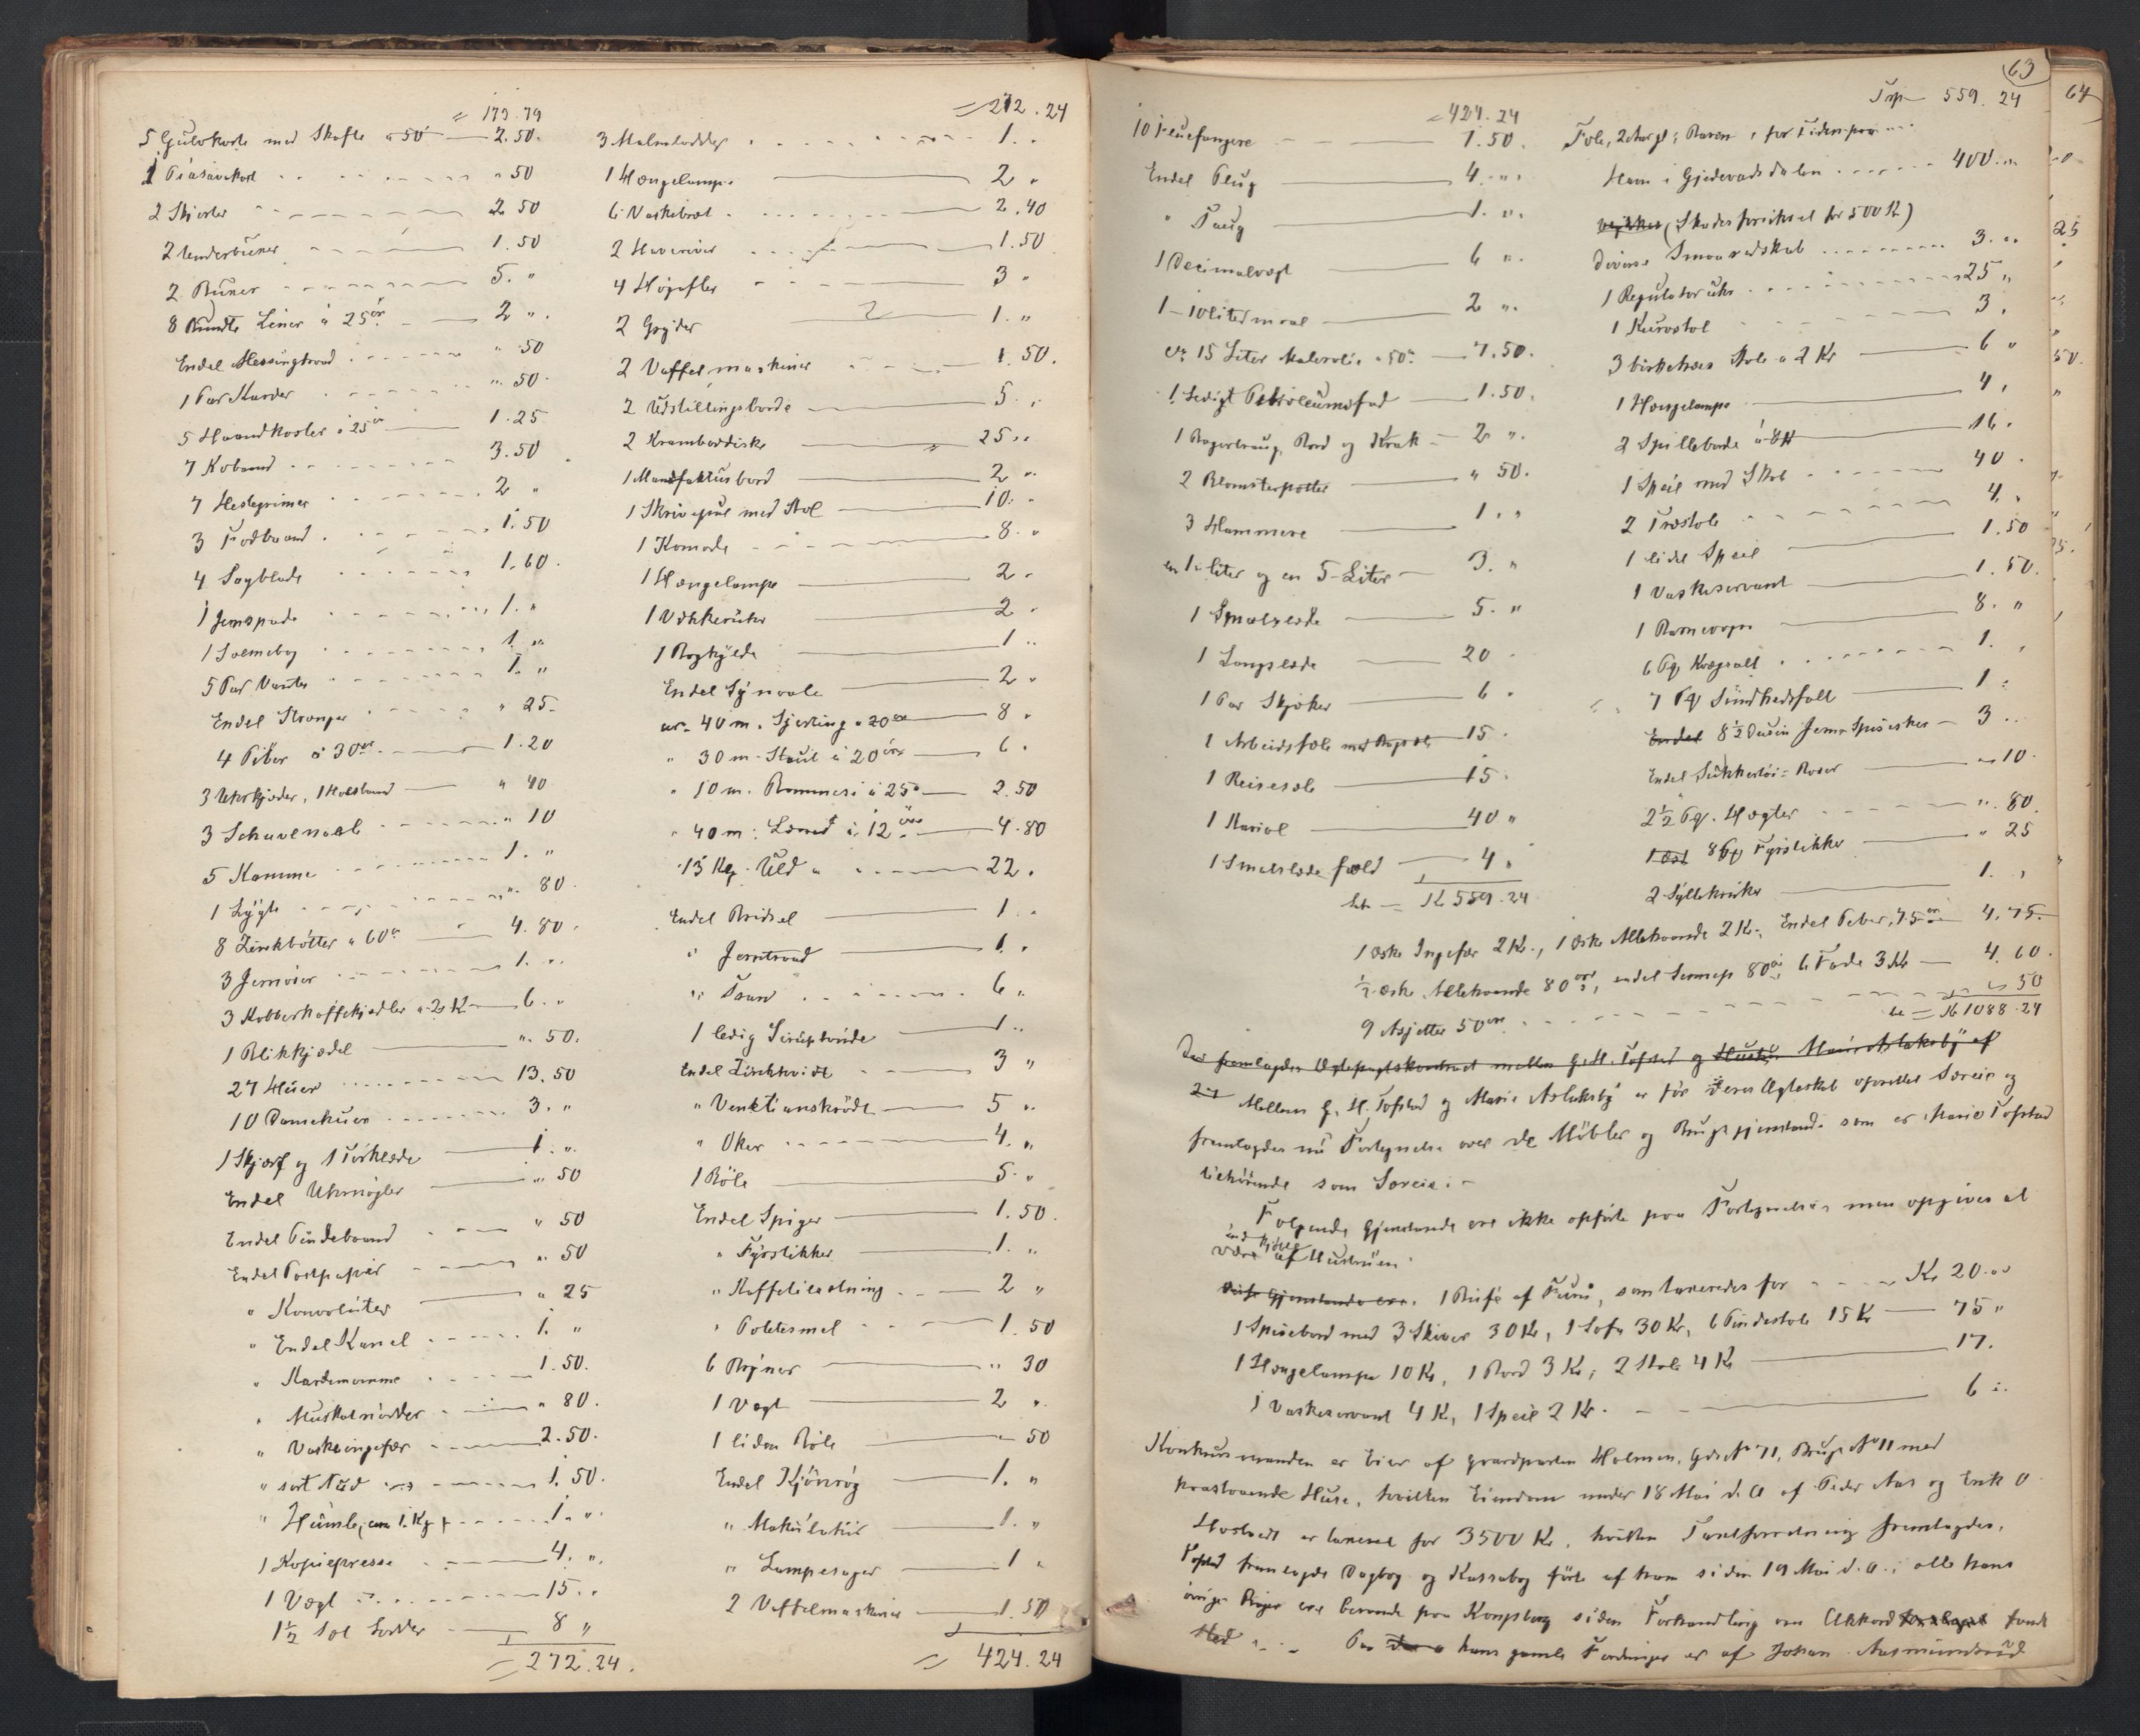 = 173.79
5 Gulvkoste med Skafte a 50 2.50.
1 Piasavakost " 50
2 Skjorter 2 50
2 Underbuxer 1.50
2 Buxer 5. "
8 Bundte Liner a 25 ør 2 ".
Endel Messingtraad " 50
1 Par Karder ". 50.
5 Haandkoster a 25 ør 1.25
7 Kobaand 3.50
7 Hestegrimer 2 "
3 Fodbaand 1.50
4 Sagblade 1.60.
1 Jernspade 1. "
1 Salmebog 1. "
5 Par Vanter 1. "
Endel Strænger " 25.
4 Piber a 30 ør 1.20
3 Uhrkjæder, 1 Halsbaand " 40
3 Skruenagl " 10
5 Kamme 1. "
1 Lygte ". 80.
8 Zinkbøtter a 60 ør 4.80.
3 Jernøser 1. ".
3 Kobberkaffekjedler a 2 Kr 6. "
1 Blikkjedel ". 50.
27 Huer 13.50
10 Damehuer 3. "
1 Skjærf og 1 Tørklæde 1. ".
Endel Uhrnøgler " 50
Endel Pindebaand " 50
Endel Postpapir " 50
" Konvoluter " 25
" Endel Kanel 1. "
" Kardemomme 1.50.
" Muskatnødder " 80.
" Vaskeingefær 2.50.
" sort Traad 1.50.
" Humle, ca 1. Kg 1. ".
1 Kopiepresse 4. ".
1 Vægt 15. "
1½ Sæt Lodder 8 "
= 272.24.
= 272.24
3 Malmlodder 1. "
1 Hængelampe 2 "
6 Vaskebræt 2.40
2 Haveriver 1.50
4 Høgafler 3 "
2 Gryder 1. "
2 Vaffelmaskiner 1.50.
2 Udstillingsborde 5. "
2 Kramboddiske 25 "
1 Manufakturbord 2 "
1 Skrivepult med Stol 10. "
1 Komode 8. "
1 Hængelampe 2 "
1 Vækkeruhr 2 "
1 Boghylde 1 "
Endel Synaale 2 "
ca. 40 m. Sjerting a 20 øre 8 "
" 30 m. Stout a 20 øre 6 "
" 10 m. Bommesi a 25 ø 2.50
" 40 m. Lærred a 12 øre 4.80
15 Kg. Uld a 22.
Endel Bidsel 1. "
" Jerntraad 1. "
" Traad 6 "
1 ledig Siruptønde 1. "
Endel Zinkhvidt 3 "
" Venetianskrødt 5 "
" Oker 4. "
1 Bøle 5. "
Endel Spiger 1.50.
" Fyrstikker 1. "
" Kaffetilsætning 2 "
" Potetesmel 1.50
6 Bryner " 30
1 Vægt 2 "
1 liden Bøle " 50
Endel Kjønrøg 1. "
" Makulatur 1. "
" Lampesager 1 "
2 Vaffelmaskiner 1.50
= 424.24
63
64
= 424.24
10 Fluefangere 1.50.
Endel Plug 4. "
" Taug 1. "
1 Decimalvægt 6 "
1 - 10 litermaal 2 ".
ca 15 Liter Malerolie a 50 ø 7.50.
1 Ledigt Petroleumsfad 1.50.
1 Bagertraug, Bord og Krak 2 ".
2 Blomsterpotter " 50.
3 Hammere 1. "
en 1 liter og en 5-Liter 3. "
1 Spidsslæde 5. "
1 Langslæde 20
1 Par Skjøker 6 "
1 Arbeidssæle med Bogtræ 15.
1 Reisesæle 15.
1 Kariol 40 "
1 Smalslæde fæld 4 "
Lat = Kr 559.24
Trsp 559.24
Fole, 2 Aar gl. Baren
Havn i Gjedevadsdalen 400 "
(Skadesforsikret for 500 Kr)
Diverse Smaaredskab 3. "
1 Regulatoruhr 25 "
1 Kurvstol 3.
3 birketræs Stole a 2 Kr 6 "
1 Hængelampe 4 "
2 Spilleborde a 8 Kr 16.
1 Speil med Skab 40.
2 Træstole 4. "
1 lidet Speil 1.50
1 Vaskeservant 1.50.
1 Barnevogn 8. "
6 Pq Kvægsalt 1. "
7 Pq Sundhedssalt 1 "
Endel 8½ Dusin Jern Spiseskeer 3 "
Endel Sukkertøi = Roser " 10.
2½ Pq. Hægter ". 80.
8 Pq Fyrstikker " 25
2 Sylteknive 1. "
1 Æske Ingefær 2 Kr., 1 Æske Allehaande 2 Kr., Endel Peber, 75 ør 4.75.
½ Æske Allehaande 80 øre, endel Sennep 80 ø, 6 Fade 3 Kr 4.60.
9 Asjetter 50 øre " 50
= Kr 1088.24
Der fremlagdes Ægtepagtskontrakt mellem G. H. Tofstad og Hustru Marie Aslaksby af
Mellem G. H. Tofstad og Marie Aslaksby er før deres Ægteskab oprettet Særeie og
fremlagdes nu Fortegnelse over de Møbler og Brugsgjenstande som er Marie Tofstad
tilhørende som Særeie: -
Følgende Gjenstande ere ikke opførte paa Fortegnelsen men opgives at
være indkjøbt af Hustruen.
Disse Gjenstande ere. 1 Buffe af Furu, som taxeredes for Kr 20.00
1 Spisebord med 3 Skiver 30 Kr, 1 Sofa 30 Kr, 6 Pindestole 15 Kr 75 "
1 Hængelampe 10 Kr, 1 Bord 3 Kr, 2 Stole 4 Kr 17.
1 Vaskeservant 4 Kr, 1 Speil 2 Kr. 6 "
Konkursmanden er Eier af gaardparten Holmen, Gds No 71, Brugs No 11 med
paastaaende Huse, hvilken Eiendom under 18 Mai d. A. af Peder Aas og Erik O
er taxeret for 3500 Kr, hvilken Taxtforretning fremlagdes.
Tofstad fremlagde Dagbog og Kassabog ført af ham siden 19 Mai d. A.; alle hans
øvrige Bøger ere beroende paa Kongsberg siden Forhandling om Akkord fandt
Sted. Paa hans gamle Fordringer er af Johan Aasmundrud